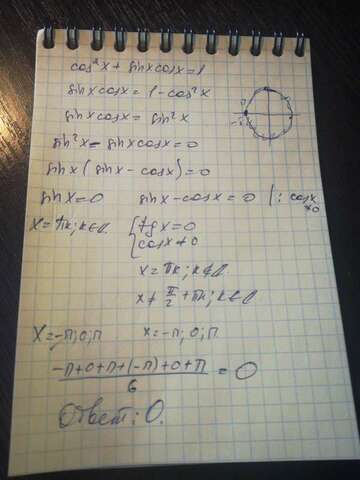 cos²x + sinxcosx = 1
sinxcosx = 1 - cos²x
sinxcosx = sin²x
sin²x - sinxcosx = 0
sinx(sinx - cosx) = 0
sinx = 0 sinx - cosx = 0 | : cosx ≠0
x = πk; k∈Z { tgx = 0
cosx ≠ 0
x = πk; k∉Z
x ≠ π/2 + πk; k∈Z
x = -π; 0; π x = -π; 0; π
(-π + 0 + π + (-π) + 0 + π)/6 = 0
Ответ: 0.